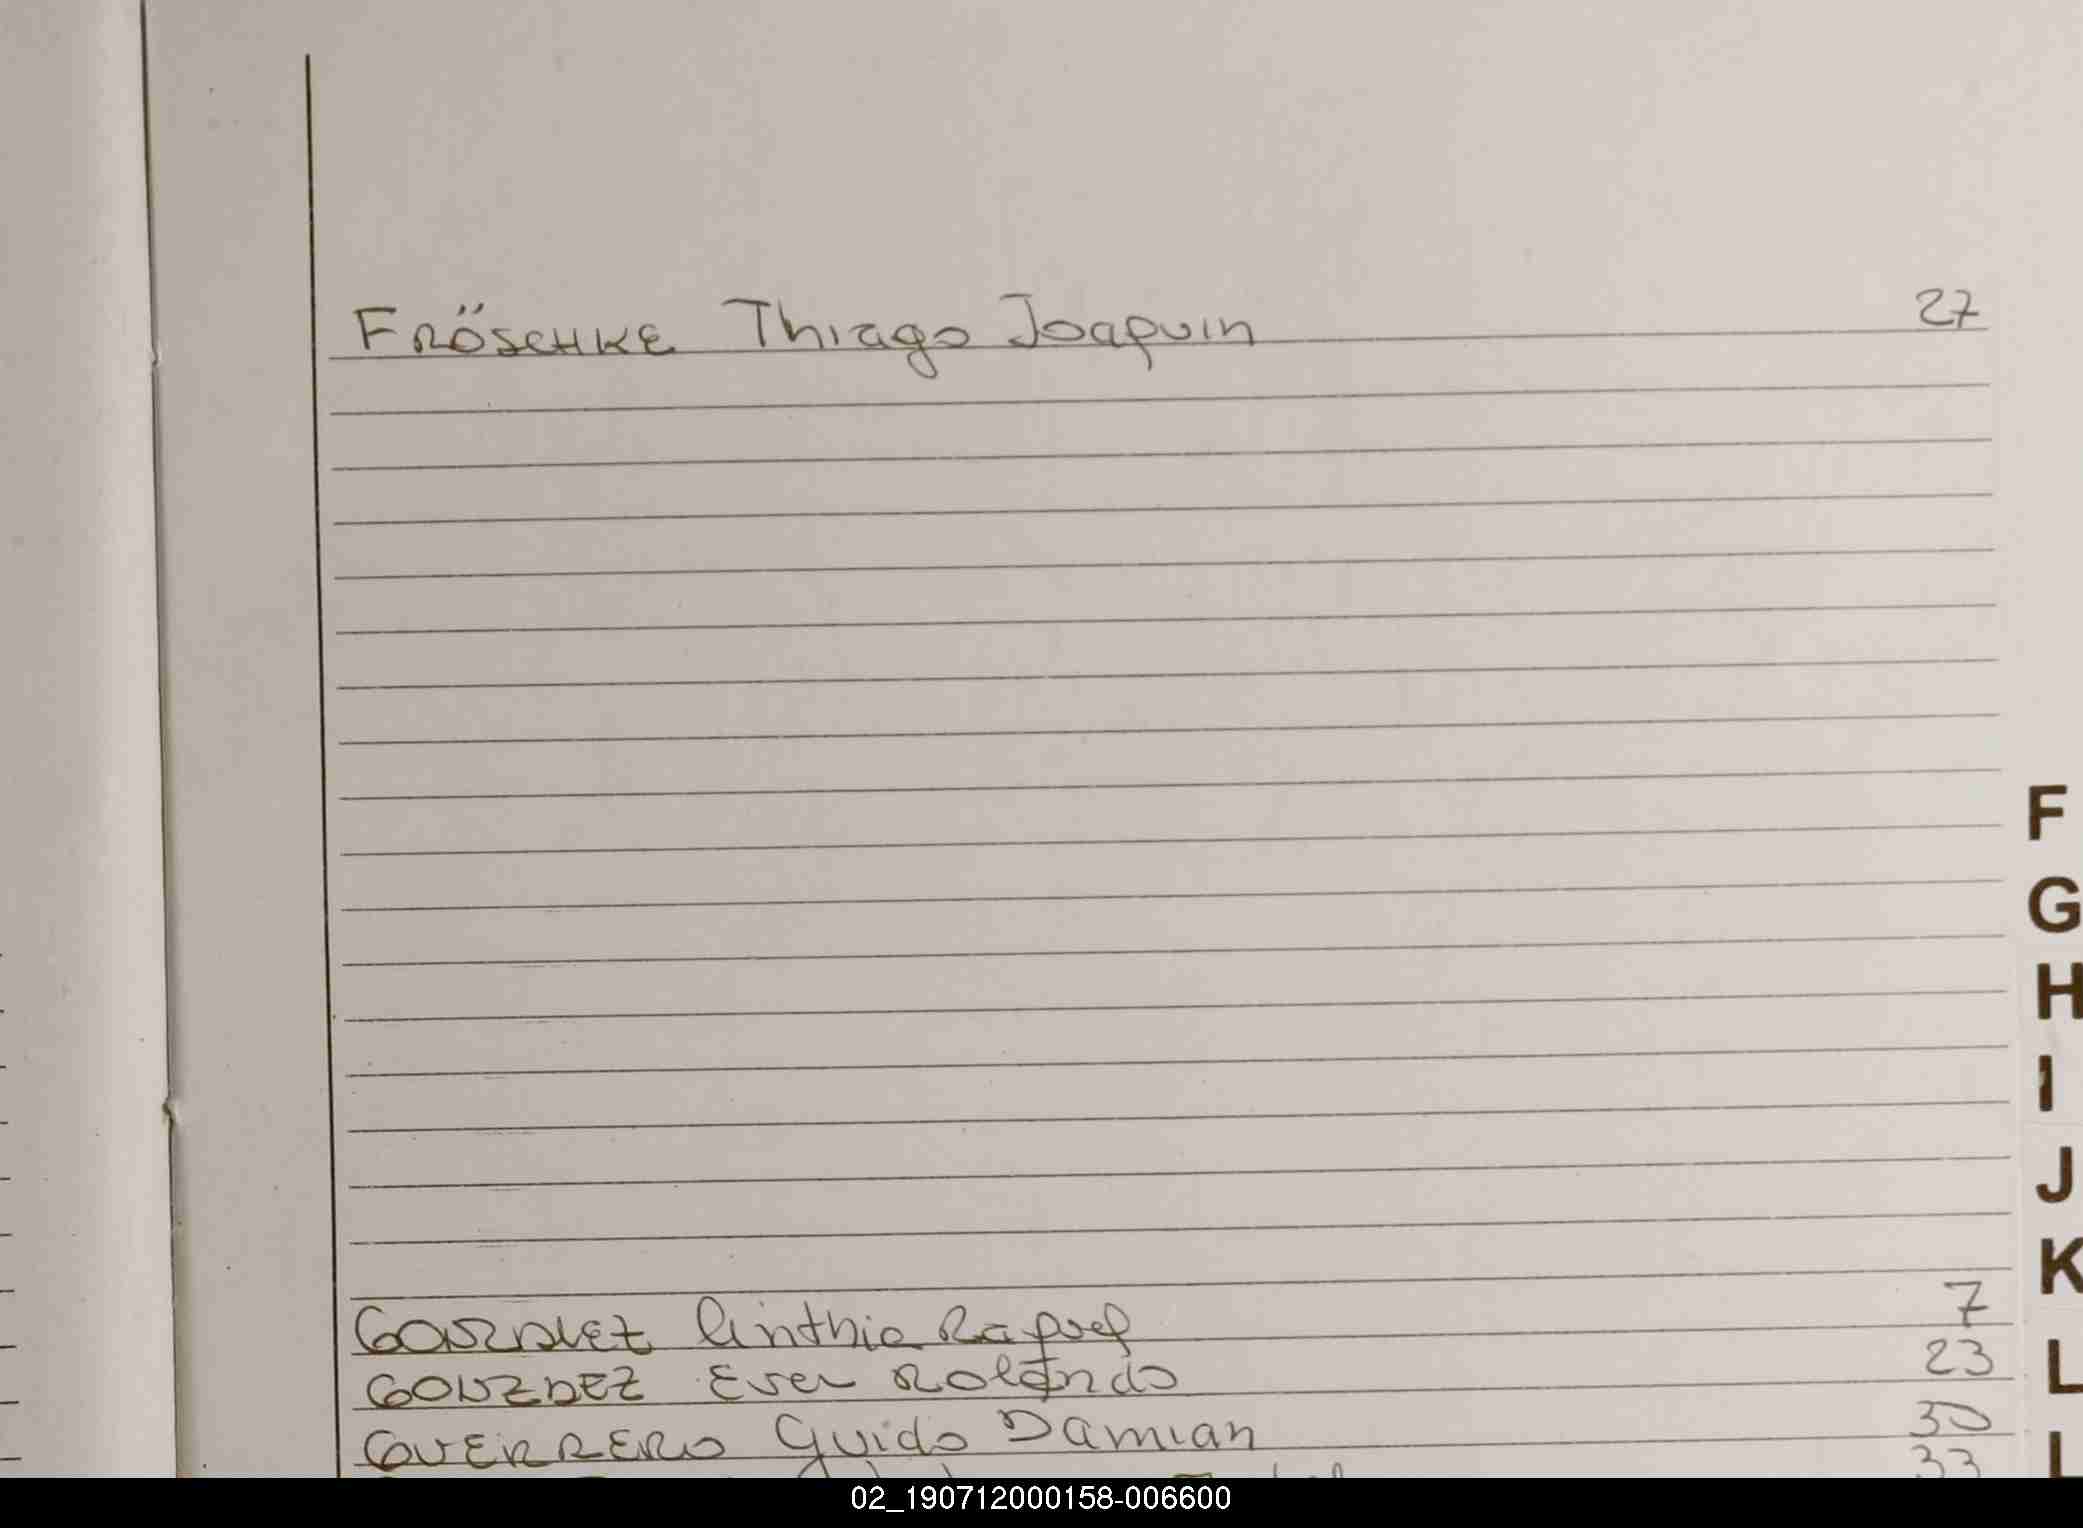 FRÖSCHKE Thiago Joaquin 27
F
G
H
I
J
K
GONZALEZ Cinthia Raquel 7
GONZALEZ Ever Rolando 23
L
GUERRERO Guido Damian 30
33
02_190712000158-006600